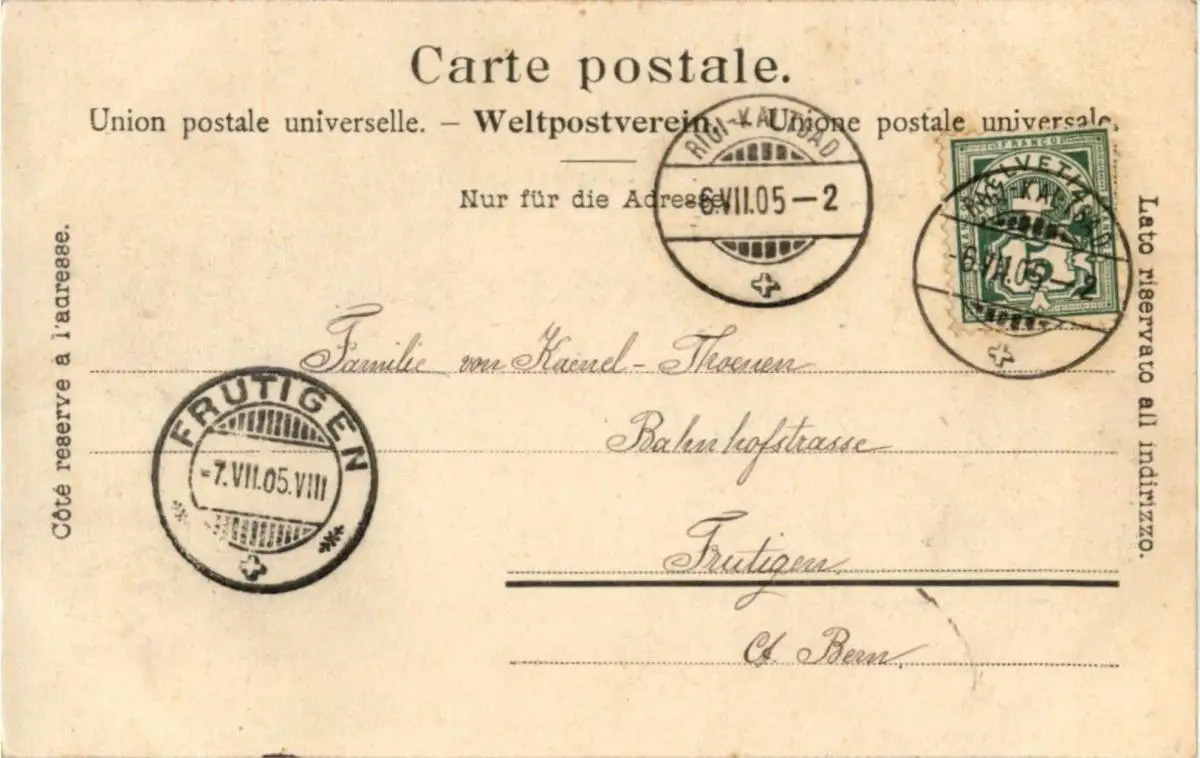 Carte postale.
Union postale universelle. – Weltpostverein. – Unione postale universale.
Nur für die Adresse.
RIGI-KALTBAD
6.VII.05–2
FRANCO
HELVETIA
RIGI-KALTBAD
-6.VII.05–2
Côté reservé à l'adresse.
Lato riservato all indirizzo.
Familie von Kaenel-Thoenen
Bahnhofstrasse
FRUTIGEN
-7.VII.05.VIII
Frutigen.
Ct. Bern.